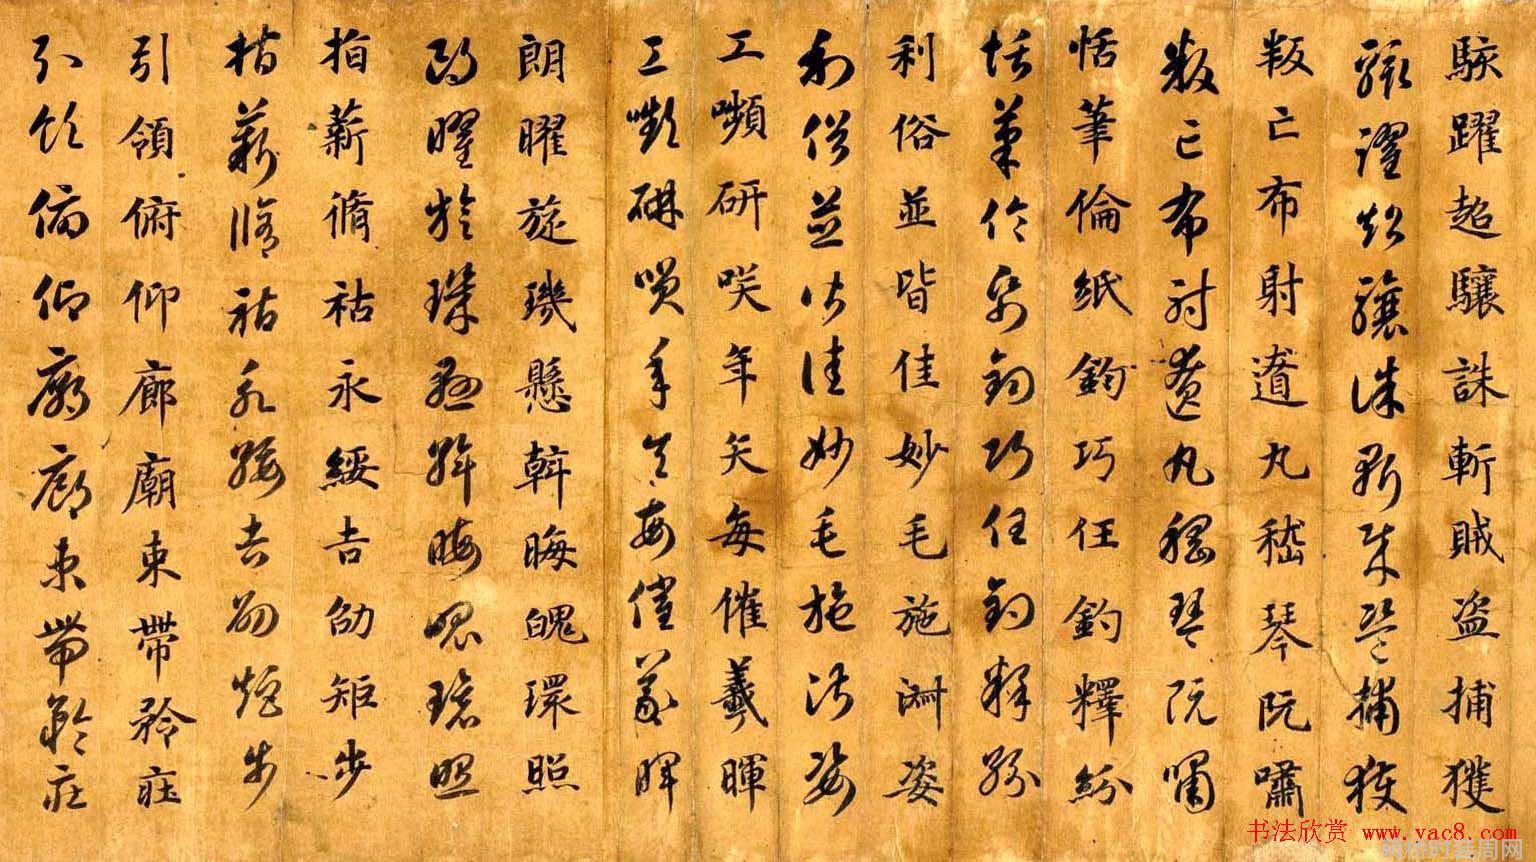 駭躍超驤誅斬賊盜捕獲
駭躍超驤誅斬賊盜捕獲
叛亡布射遼丸嵇琴阮嘯
叛亡布射遼丸嵇琴阮嘯
恬筆倫紙鈞巧任釣釋紛
恬筆倫紙鈞巧任釣釋紛
利俗並皆佳妙毛施淑姿
利俗並皆佳妙毛施淑姿
工嚬研咲年矢每催羲暉
工嚬研咲年矢每催羲暉
朗曜旋璣懸斡晦魄環照
朗曜旋璣懸斡晦魄環照
指薪脩祜永綏吉劭矩步
指薪脩祜永綏吉劭矩步
引領俯仰廊廟束帶矜莊
引領俯仰廊廟束帶矜莊
书法欣赏 www.yac8.com